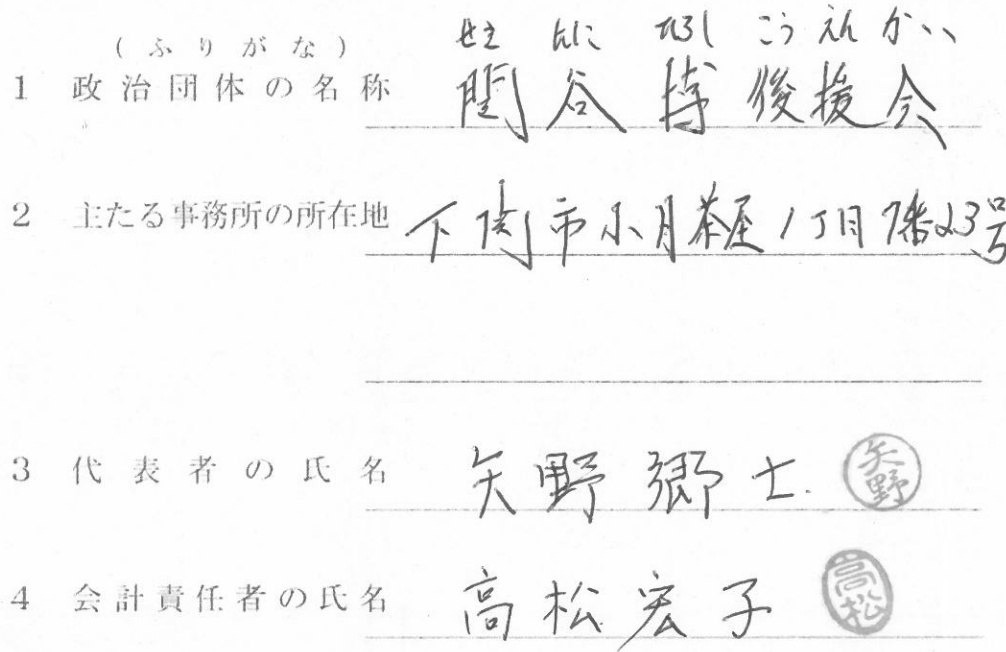 (ふりがな) せき たに ひろし こうえんかい
1 政治団体の名称 関谷博後援会
2 主たる事務所の所在地 下関市小月茶屋1丁目7番23号
3 代表者の氏名 矢野郷士 矢野
4 会計責任者の氏名 高松宏子 高松